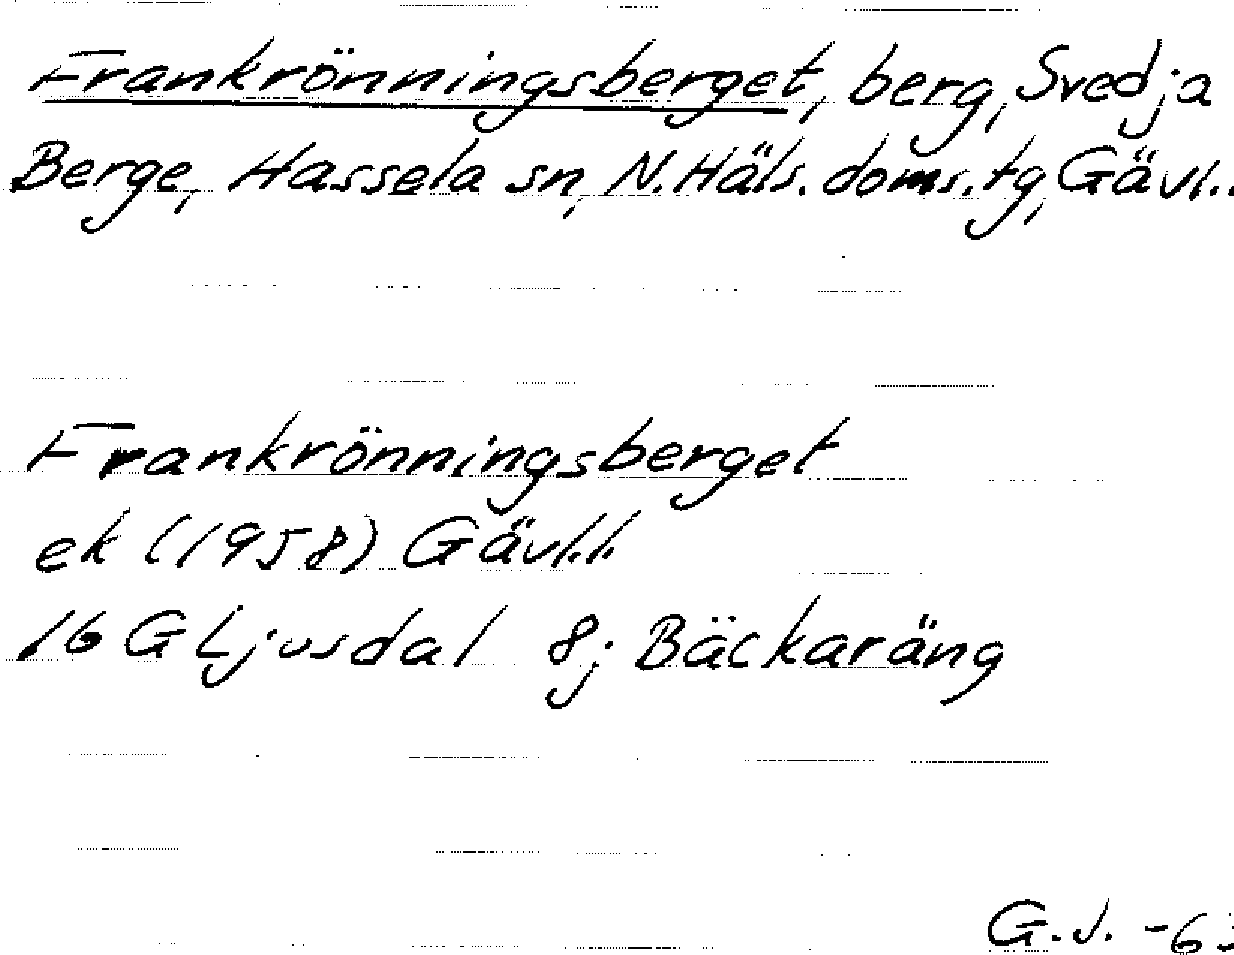 Frankrönningsberget, berg, Svedja
Berge, Hassela sn, N.Häls. doms.tg, Gävl..
Frankrönningsberget
ek (1958) Gävl.l.
16 G Ljusdal 8j Bäckaräng
G.J. -63